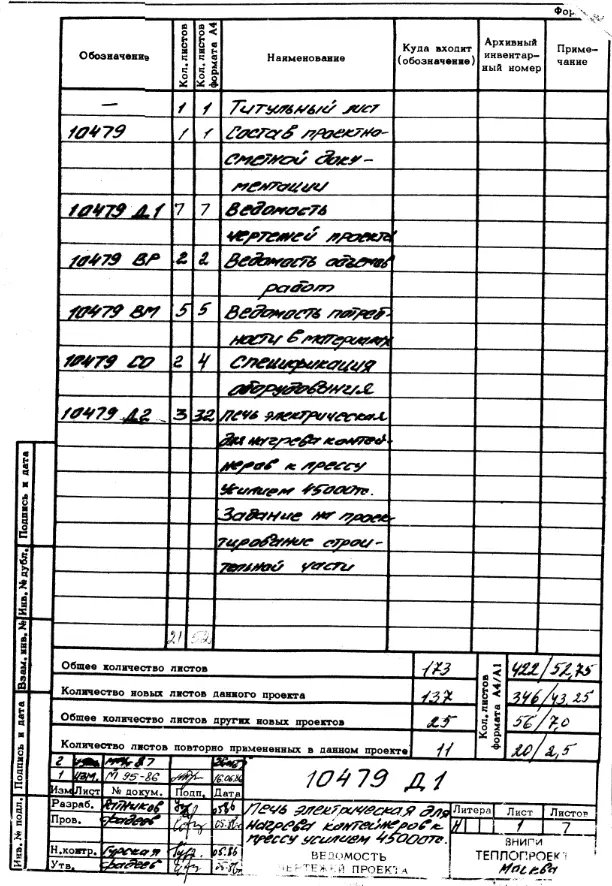 Обозначение Кол. листов Кол. листов формата А4 Наименование Куда входит (обозначение) Архивный инвентарный номер Примечание
— 1 1 Титульный лист
10479 1 1 Состав проектно-
сметной доку-
ментации
10479 Д1 7 7 Ведомость
чертежей проекта
10479 ВР 2 2 Ведомость объемов
работ
10479 ВМ 5 5 Ведомость потреб-
ности в материалах
10479 СО 2 4 Спецификация
оборудования
10479 Д2 3 32 Печь электрическая
для нагрева контей-
неров к прессу
усилием 45000тс.
Задание на проек-
тирование строи-
тельной части
21
Общее количество листов 173 422/52,75
Количество новых листов данного проекта 137 346/43,25
Общее количество листов других новых проектов 25 56/7,0
Количество листов повторно примененных в данном проекте 11 20/2,5
Кол. листов формата А4/А1
Подпись и дата
Инв. № дубл.
Взам. инв. №
Подпись и дата
Инв. № подл.
2
1 Изм. М 95-86
Изм Лист № докум. Подп. Дата
10479 Д1
Разраб. 05.86
Пров. Фадеев
Н.контр. Гурская 05.86
Утв. Фадеев
Печь электрическая для
нагрева контейнеров к
прессу усилием 45000тс.
ВЕДОМОСТЬ
ЧЕРТЕЖЕЙ ПРОЕКТА
Литера Лист Листов
И 1 7
ВНИПИ
ТЕПЛОПРОЕКТ
Москва